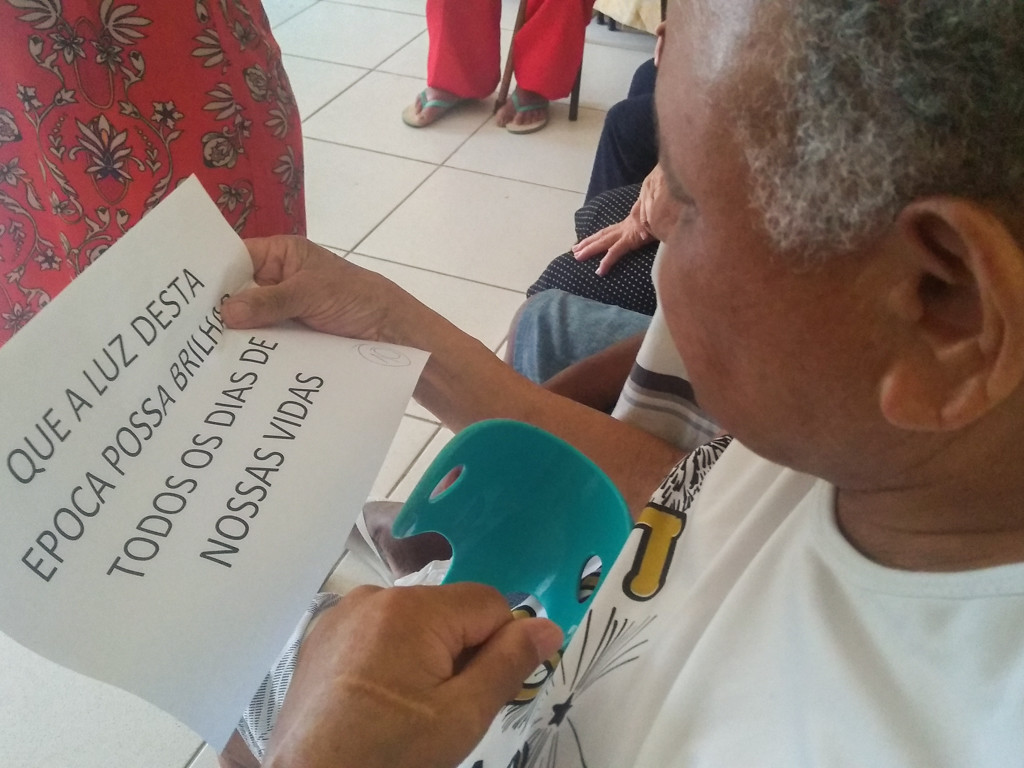 QUE A LUZ DESTA
EPOCA POSSA BRILHAR
TODOS OS DIAS DE
NOSSAS VIDAS
10